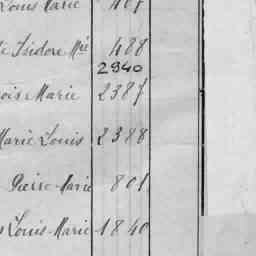 Louis Marie 487
Isidore Mie 488
2940
ois Marie 2387
Marie Louis 2388
Pierre Marie 801
s Louis Marie 1840